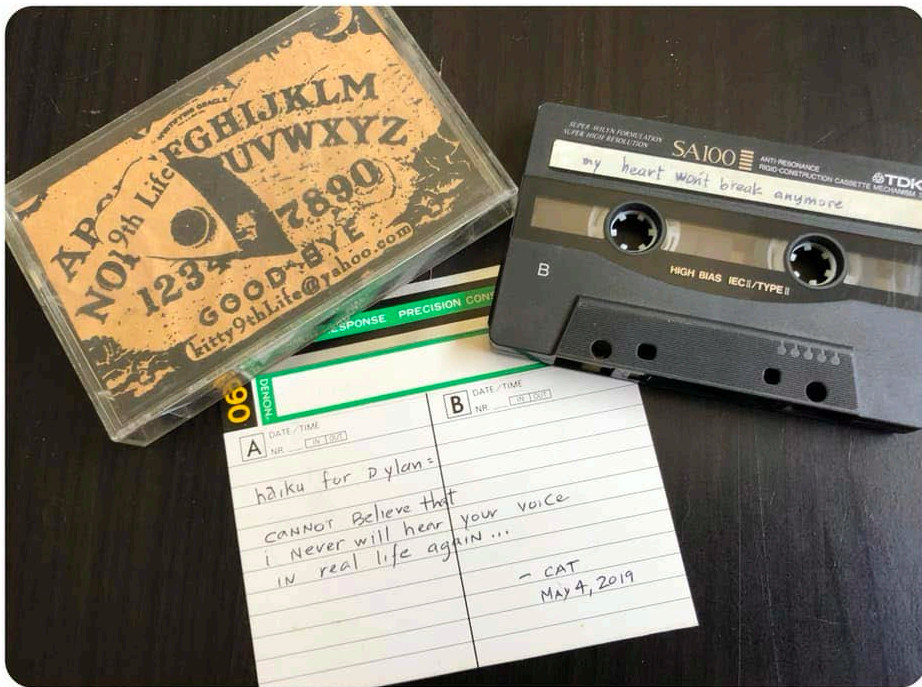 MYSTIFYING ORACLE
FGHIJKLM
UVWXYZ
NO! 9th Life
1234 7890
GOOD BYE
kitty9thLife@yahoo.com
SUPER AVILYN FORMULATION
SUPER HIGH RESOLUTION
SA100
ANTI-RESONANCE
RIGID-CONSTRUCTION CASSETTE MECHANISM
TDK
my heart won't break anymore
B
HIGH BIAS IECII/TYPE II
PRECISION
DENON
A DATE/TIME
NR. IN OUT
B DATE/TIME
NR. IN OUT
haiku for Dylan:
CANNOT Believe that
i Never will hear your voice
IN real life agaiN...
- CAT
MAY 4, 2019